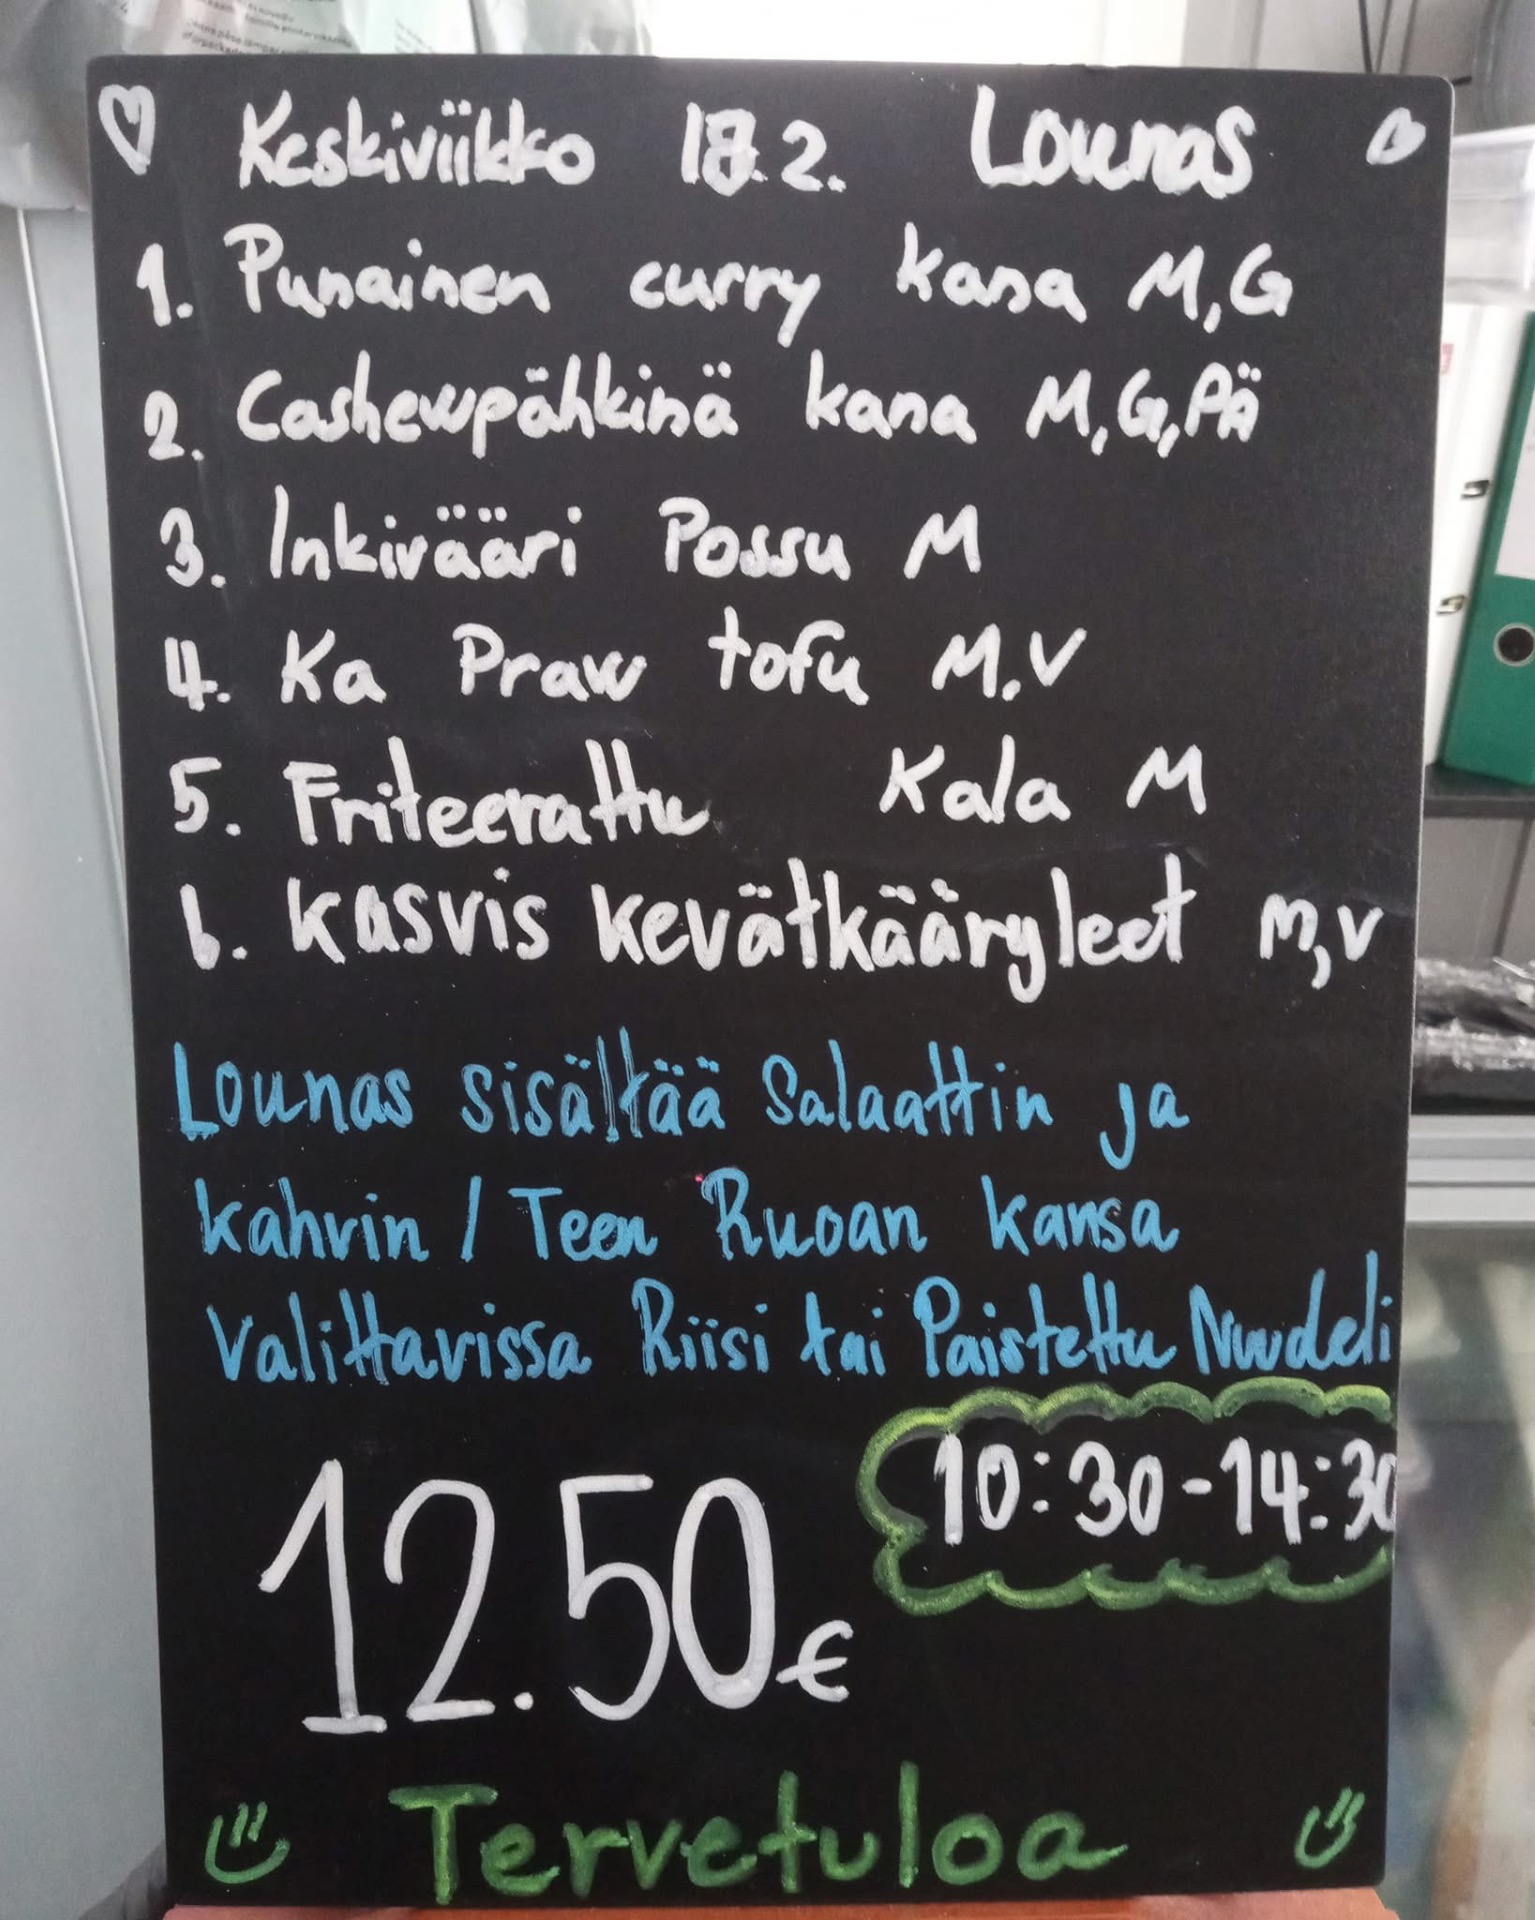 Keskiviikko 18.2. Lounas
1. Punainen curry kana M,G
2. Cashewpähkinä kana M,G,PÄ
3. Inkivääri Possu M
4. Ka Praw tofu M,V
5. Friteerattu Kala M
6. Kasvis kevätkääryleet M,V
Lounas sisältää Salaattin ja
kahvin / Teen Ruoan kansa
Valittavissa Riisi tai Paistettu Nuudeli
10:30-14:30
12.50€
Tervetuloa